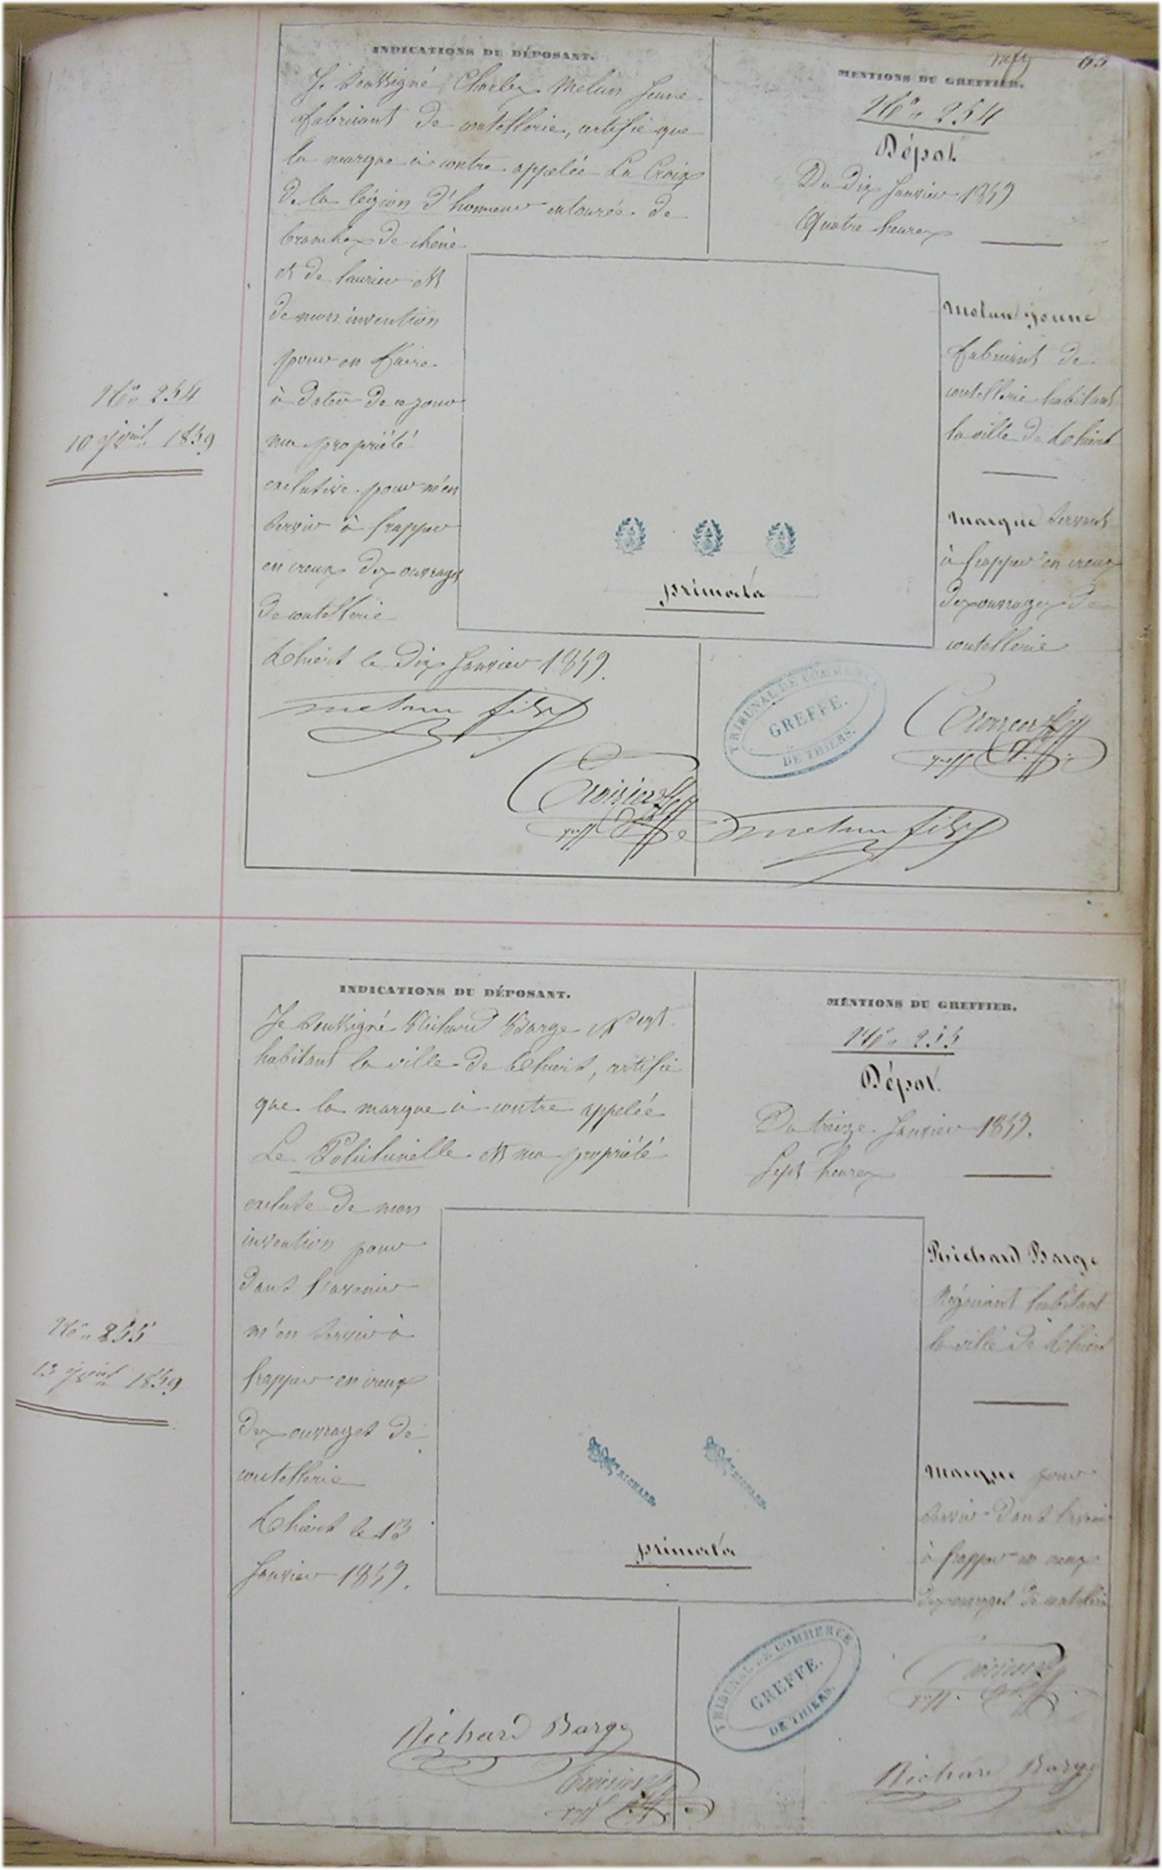 65
INDICATIONS DU DÉPOSANT.
Je Soussigné Charles Melun Jeune
fabricant de coutellerie, certifie que
la marque ci contre appelée La Croix
de la légion d'honneur entourée de
branches de chêne
et de laurier est
de mon invention
pour en faire
à dater de ce jour
ma propriété
exclusive pour m'en
servir à frapper
en creux des ouvrages
de coutellerie
Thiers le dix Janvier 1859.
MENTIONS DU GREFFIER.
No 254
Dépôt
Du dix Janvier 1859
Quatre heures
Melun Jeune
fabricant de
coutellerie habitant
la ville de Thiers
Marque servant
à frapper en creux
des ouvrages de
coutellerie
primata
No 254
10 Jvier 1859
TRIBUNAL DE COMMERCE
GREFFE.
DE THIERS.
INDICATIONS DU DÉPOSANT.
Je Soussigné Richard Barge Negt
habitant la ville de Thiers, certifie
que la marque ci contre appelée
Le Polichinelle est ma propriété
exclusive de mon
invention pour
dans l'avenir
m'en servir à
frapper en creux
des ouvrages de
coutellerie
Thiers le 13
Janvier 1859.
MENTIONS DU GREFFIER.
No 255
Dépôt
Du treize Janvier 1859.
Sept heures
Richard Barge
Négociant habitant
la ville de Thiers
Marque pour
servir dans l'avenir
à frapper en creux
des ouvrages de coutellerie
RICHARD. RICHARD.
primata
No 255
13 Jvier 1859
TRIBUNAL DE COMMERCE
GREFFE.
DE THIERS.
Richard Barge
Richard Barge